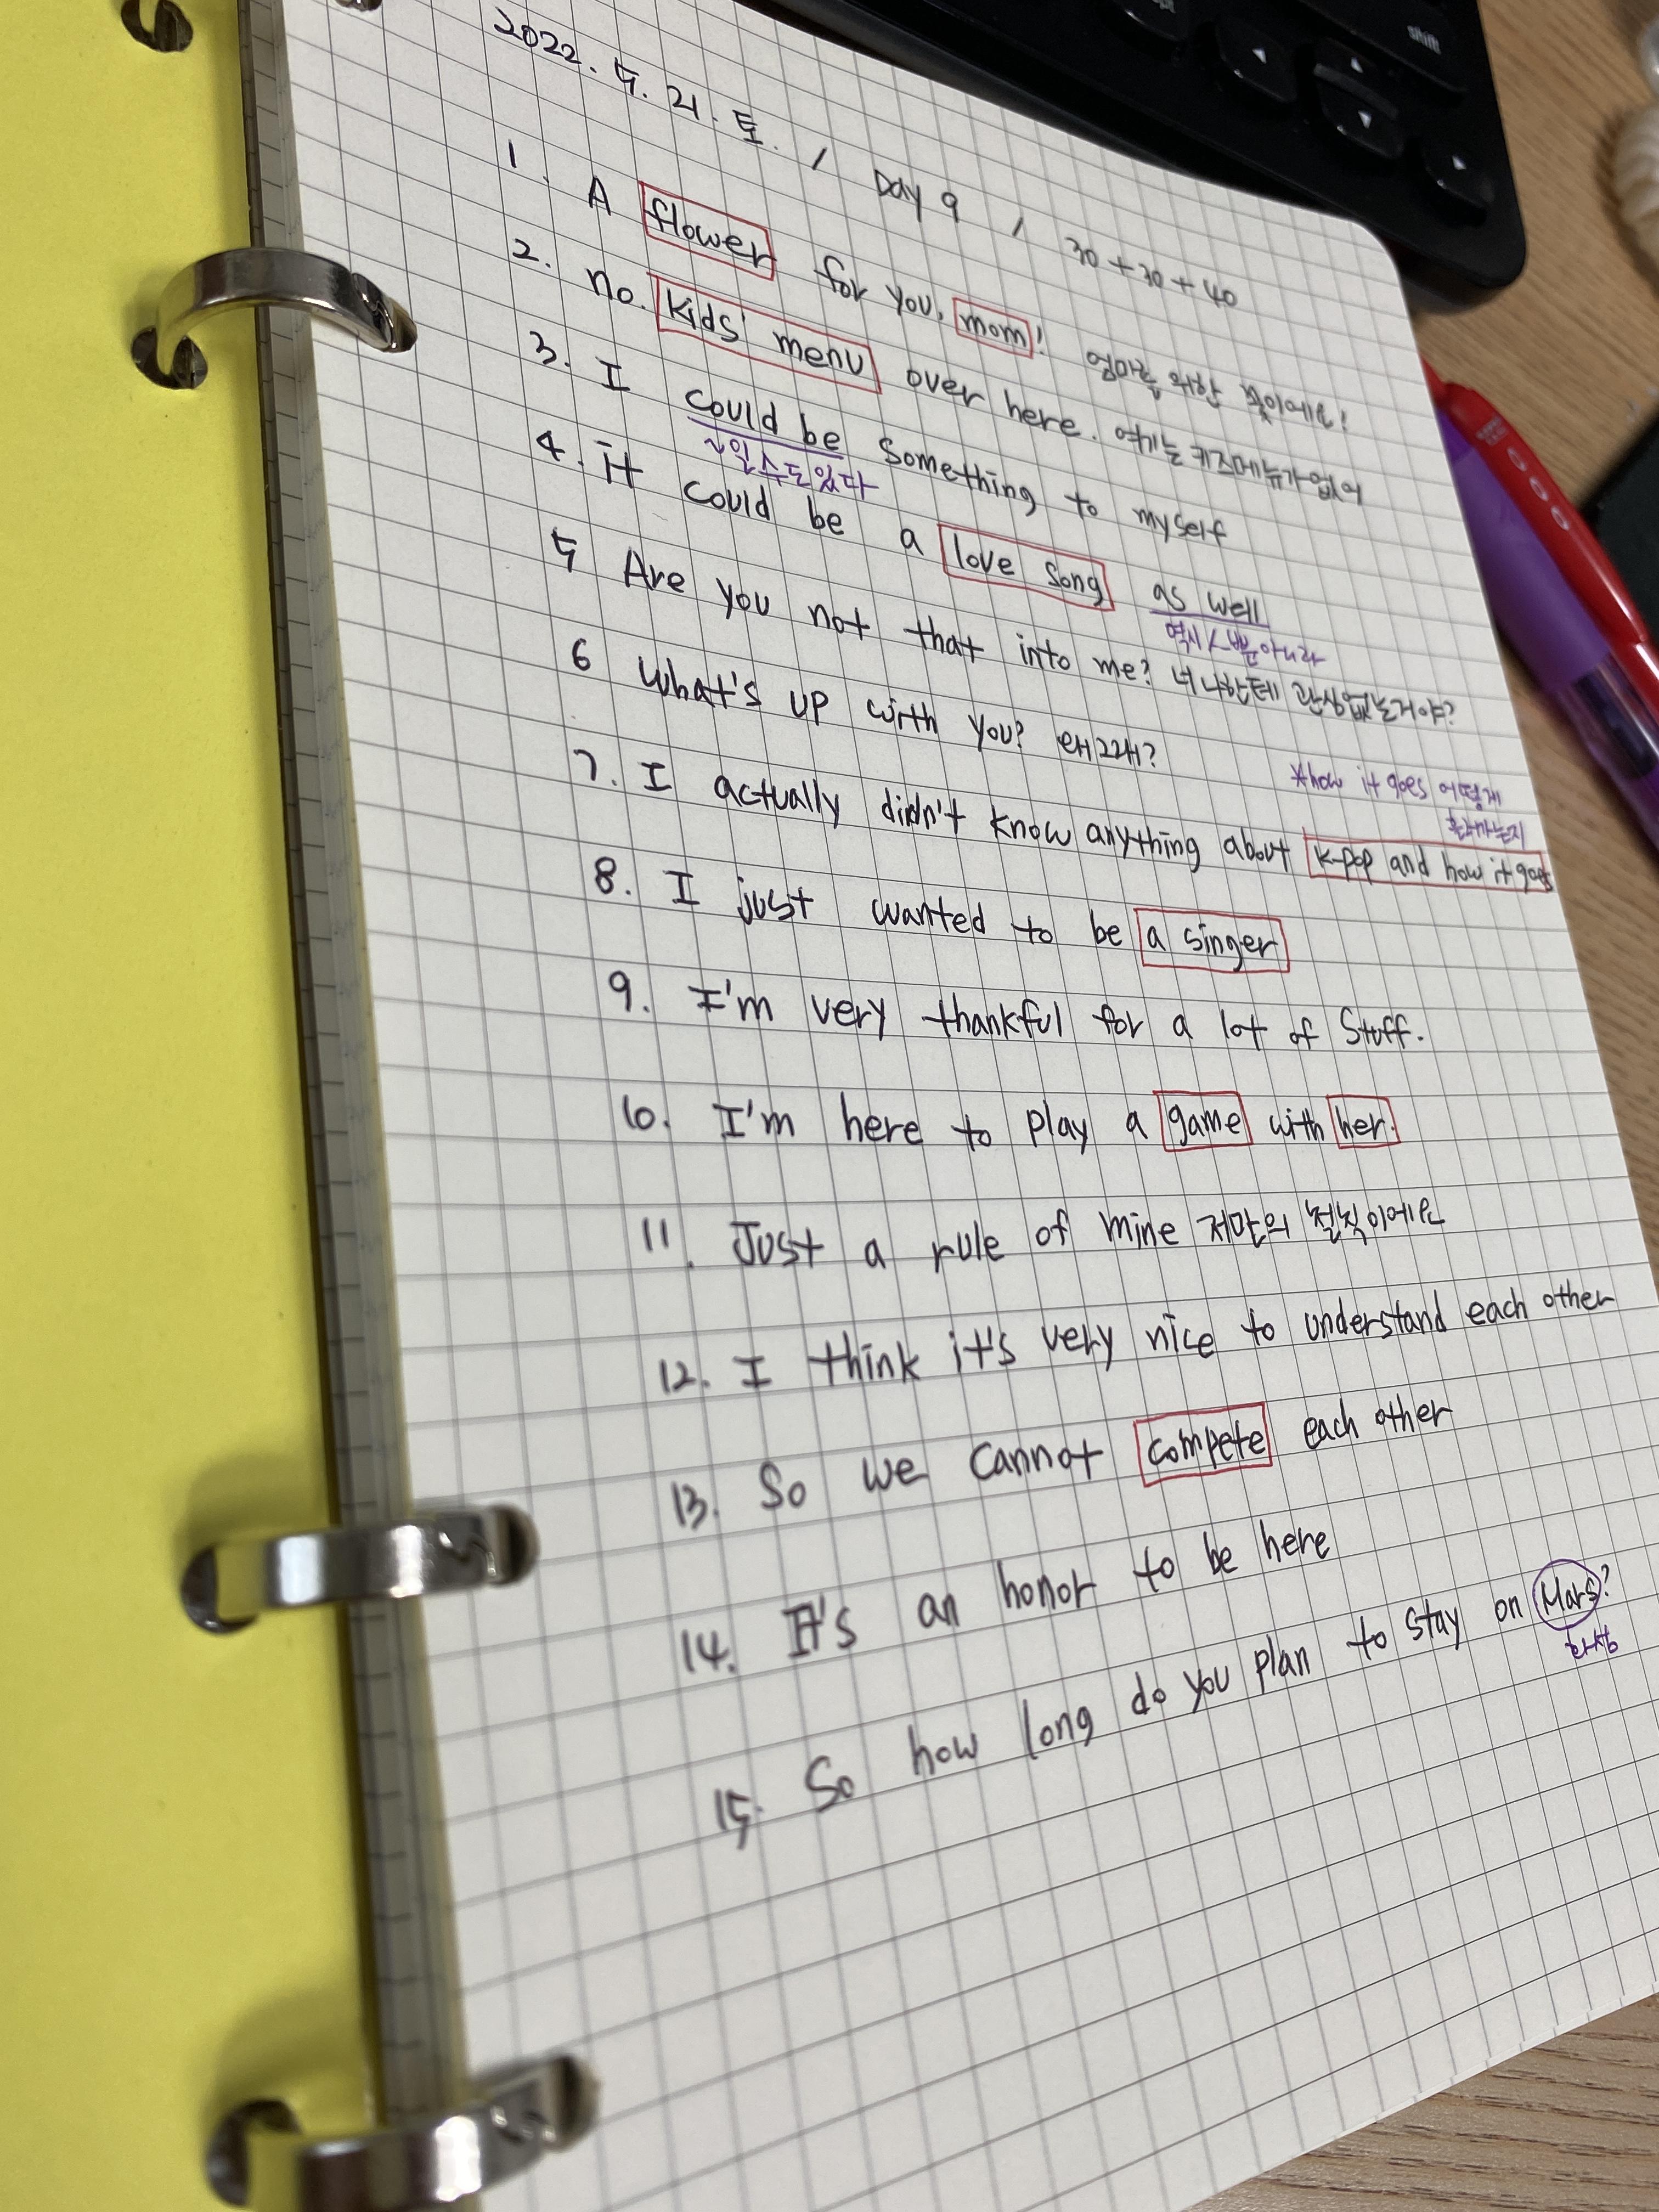 2022. 5. 21. 토. / Day 9 / 30+30+40
1. A flower for you, mom! 엄마를 위한 꽃이에요!
2. no. kids' menu over here. 여기는 키즈메뉴가 없어
3. I could be something to myself
~일 수도 있다
4. it could be a love song as well
역시/뿐아니라
5 Are you not that into me? 너 나한테 관심없는거야?
6 What's up with you? 왜그래?
*how it goes 어떻게
흘러가는지
7. I actually didn't know anything about k-pop and how it goes
8. I just wanted to be a singer
9. I'm very thankful for a lot of stuff.
10. I'm here to play a game with her.
11. Just a rule of mine 저만의 철칙이에요
12. I think it's very nice to understand each other
13. So we cannot compete each other
14. It's an honor to be here
15. So how long do you plan to stay on Mars?
화성
shift